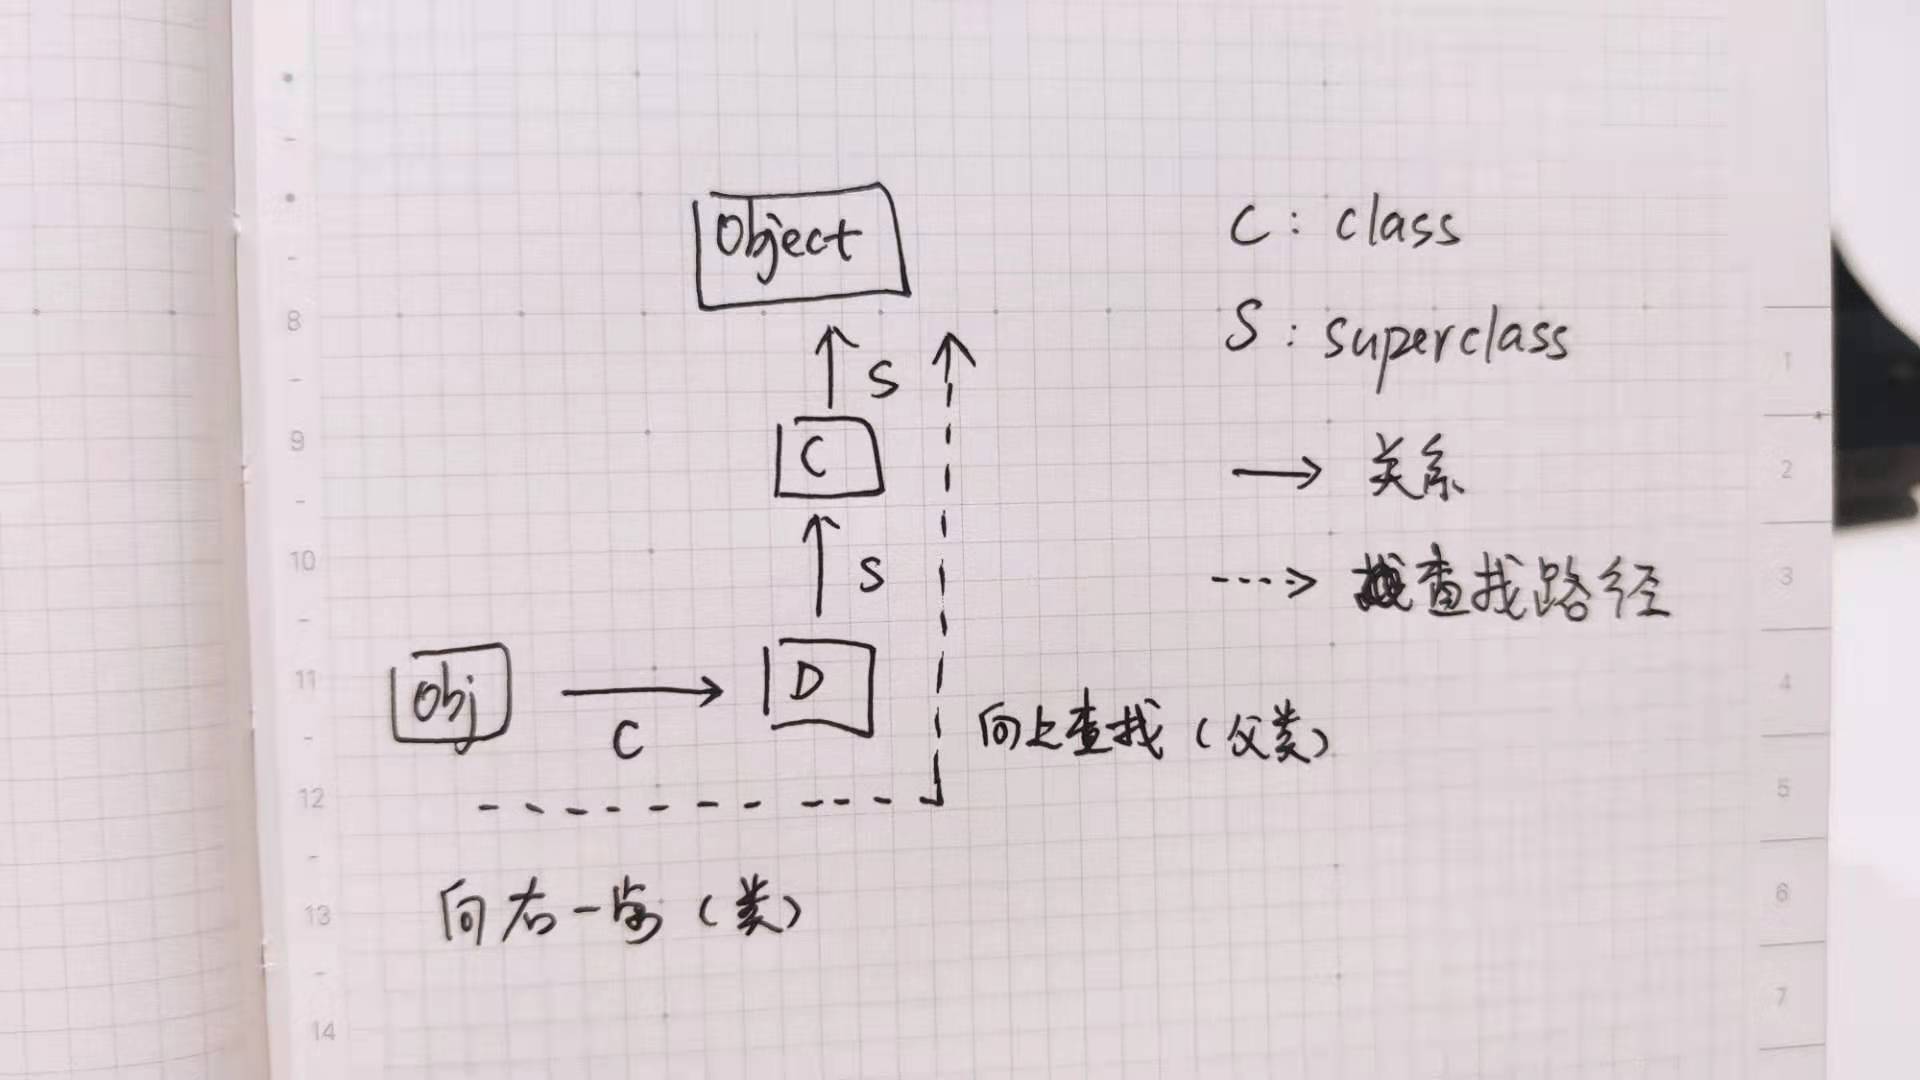 Object
C : class
S : superclass
S
C
→ 关系
S
⇢ 查找路径
Obj
D
C
向上查找（父类）
向右一步（类）
8
9
10
11
12
13
14
1
2
3
4
5
6
7